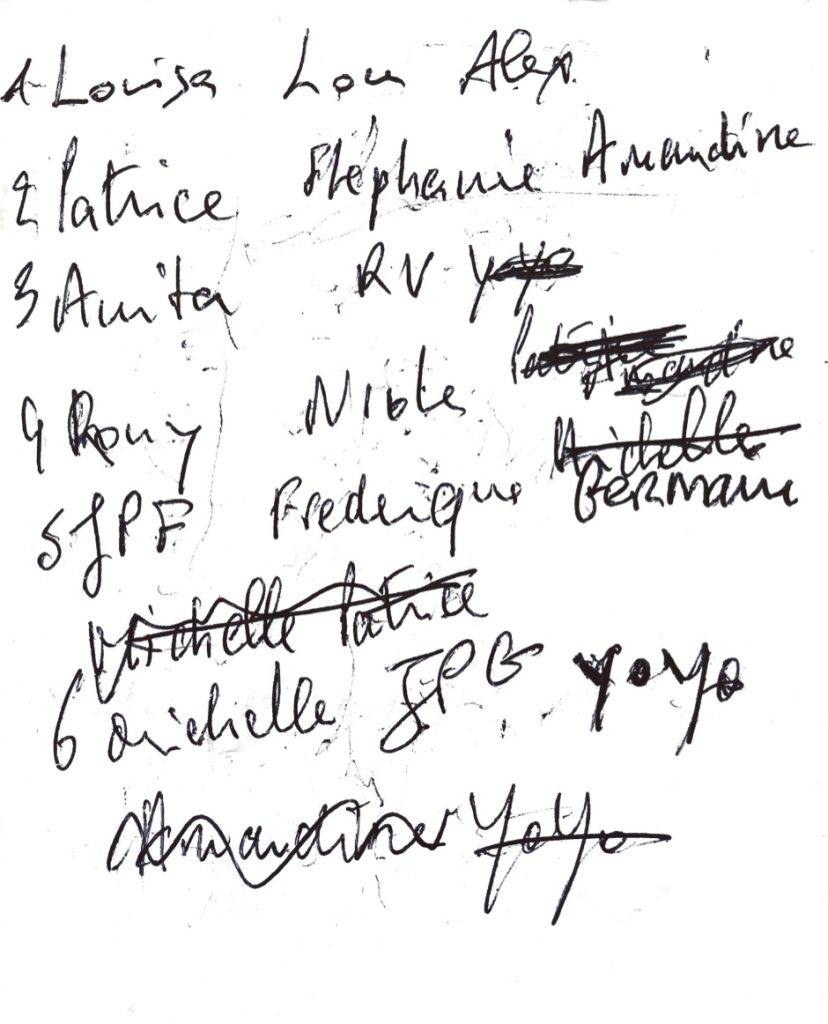 1 Louisa Lou Alex
2 Patrice Stéphanie Amandine
3 Anita RV Yoyo
Patrice Amandine
4 Romy Nicole
Michelle
5 JPF Frederique GERMAIN
Michelle Patrice
6 Michelle JPG YoYo
Amandine YoYo